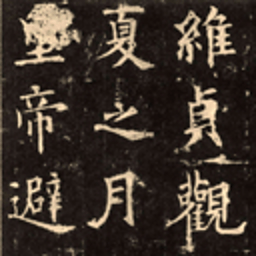 維貞觀
夏之月
皇帝避